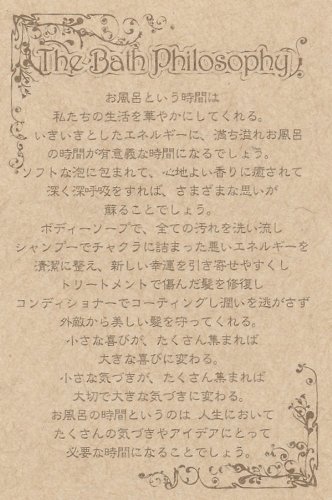 The Bath Philosophy
お風呂という時間は
私たちの生活を華やかにしてくれる。
いきいきとしたエネルギーに、満ち溢れお風呂
の時間が有意義な時間になるでしょう。
ソフトな泡に包まれて、心地よい香りに癒されて
深く深呼吸をすれば、さまざまな思いが
蘇ることでしょう。
ボディーソープで、全ての汚れを洗い流し
シャンプーでチャクラに詰まった悪いエネルギーを
清潔に整え、新しい幸運を引き寄せやすくし
トリートメントで傷んだ髪を修復し
コンディショナーでコーティングし潤いを逃がさず
外敵から美しい髪を守ってくれる。
小さな喜びが、たくさん集まれば
大きな喜びに変わる。
小さな気づきが、たくさん集まれば
大切で大きな気づきに変わる。
お風呂の時間というのは 人生において
たくさんの気づきやアイデアにとって
必要な時間になることでしょう。